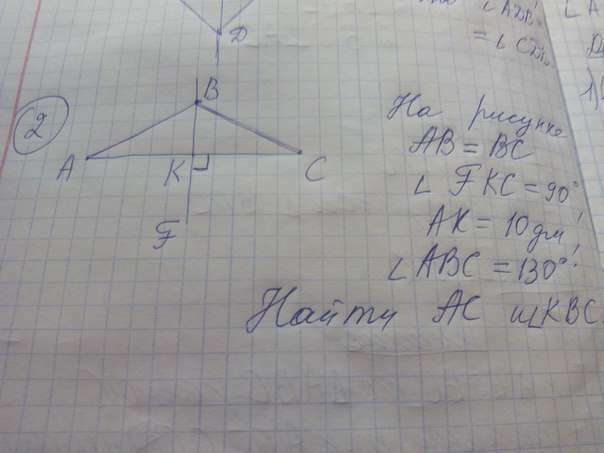 D
= ∠CDK
②
B
A
K
C
F
На рисунке
AB = BC
∠ FKC = 90°
AK = 10 дм
∠ABC = 130°
Найти AC и ∠KBC